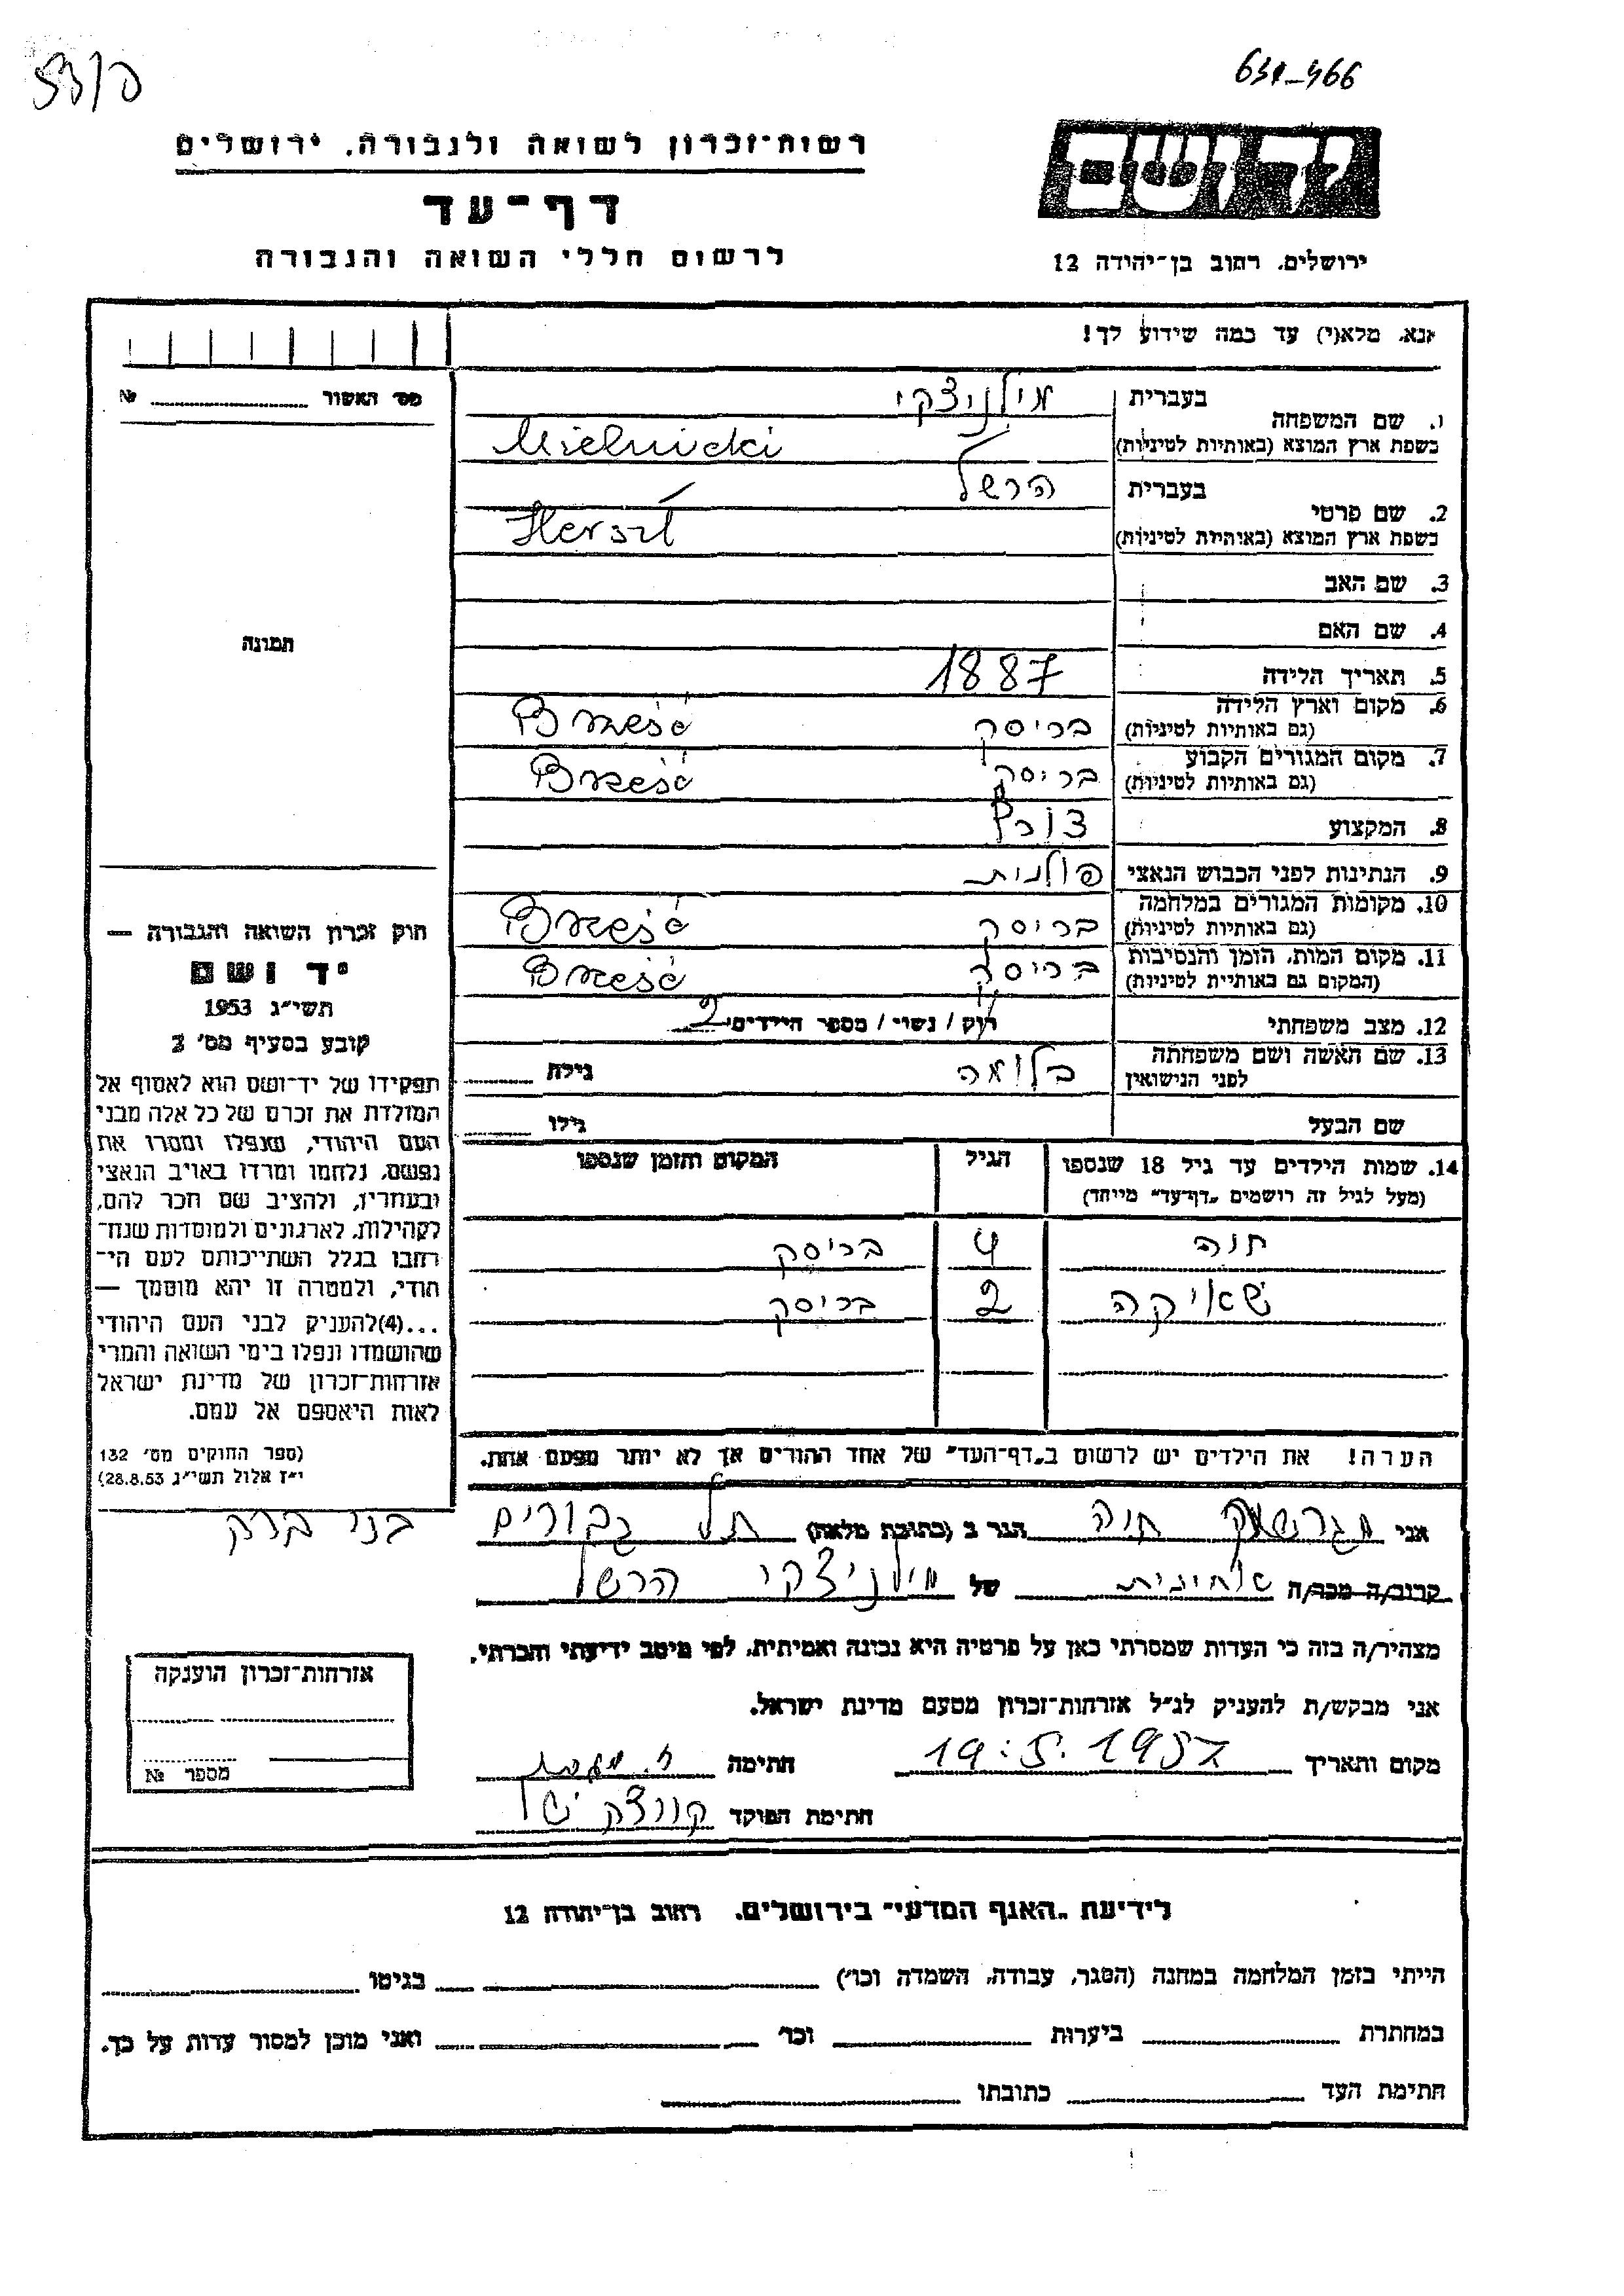 53/פ
631-466
רשות־זכרון לשואה ולגבורה, ירושלים
דף־עד
לרשום חללי השואה והגבורה
יד ושם
ירושלים, רחוב בן־יהודה 12
אנא, מלא(י) עד כמה שידוע לך!
מס׳ האשור № 
1. שם המשפחה בעברית מילניצקי
בשפת ארץ המוצא (באותיות לטיניות) Mielnicki
2. שם פרטי בעברית הרשל
בשפת ארץ המוצא (באותיות לטיניות)
3. שם האב
4. שם האם
5. תאריך הלידה 1887
6. מקום וארץ הלידה (גם באותיות לטיניות) בריסק Brześć
7. מקום המגורים הקבוע (גם באותיות לטיניות) בריסק Brześć
8. המקצוע צורף
9. הנתינות לפני הכבוש הנאצי פולנית
10. מקומות המגורים במלחמה (גם באותיות לטיניות) בריסק Brześć
11. מקום המות, הזמן והנסיבות (המקום גם באותיות לטיניות) בריסק Brześć
12. מצב משפחתי רוק / נשוי / מספר הילדים 2
13. שם האשה ושם משפחתה לפני הנישואין בלומה גילה
שם הבעל גילו
14. שמות הילדים עד גיל 18 שנספו הגיל המקום והזמן שנספו
(מעל לגיל זה רושמים "דף־עד" מיוחד)
חנה 4 בריסק
שאיקה 2 בריסק
הערה! את הילדים יש לרשום ב"דף־העד" של אחד ההורים אך לא יותר מפעם אחת.
תמונה
חוק זכרון השואה והגבורה —
יד ושם
תשי"ג 1953
קובע בסעיף מס׳ 2
תפקידו של יד־ושם הוא לאסוף אל
המולדת את זכרם של כל אלה מבני
העם היהודי, שנפלו ומסרו את
נפשם, נלחמו ומרדו באויב הנאצי
ובעוזריו, ולהציב שם וזכר להם,
לקהילות, לארגונים ולמוסדות שנח־
רבו בגלל השתייכותם לעם הי־
הודי, ולמטרה זו יהא מוסמך —
...(4) להעניק לבני העם היהודי
שהושמדו ונפלו בימי השואה והמרי
אזרחות־זכרון של מדינת ישראל
לאות היאספם אל עמם.
(ספר החוקים מס׳ 132
י"ז אלול תשי"ג 28.8.53)
אני חיה הגר ב (כתובת מלאה) תל גבורים בני ברק
קרוב/ה מכר/ה של מילניצקי הרשל
מצהיר/ה בזה כי העדות שמסרתי כאן על פרטיה היא נכונה ואמיתית, לפי מיטב ידיעתי והכרתי.
אני מבקש/ת להעניק לנ"ל אזרחות־זכרון מטעם מדינת ישראל.
מקום ותאריך 19.5.1957 חתימה
חתימת הפוקד
אזרחות־זכרון הוענקה
מספר №
לידיעת "האגף המדעי" בירושלים, רחוב בן־יהודה 12
הייתי בזמן המלחמה במחנה (הסגר, עבודה, השמדה וכו׳) בגיטו
במחתרת ביערות וכו׳ ואני מוכן למסור עדות על כך.
חתימת העד כתובתו